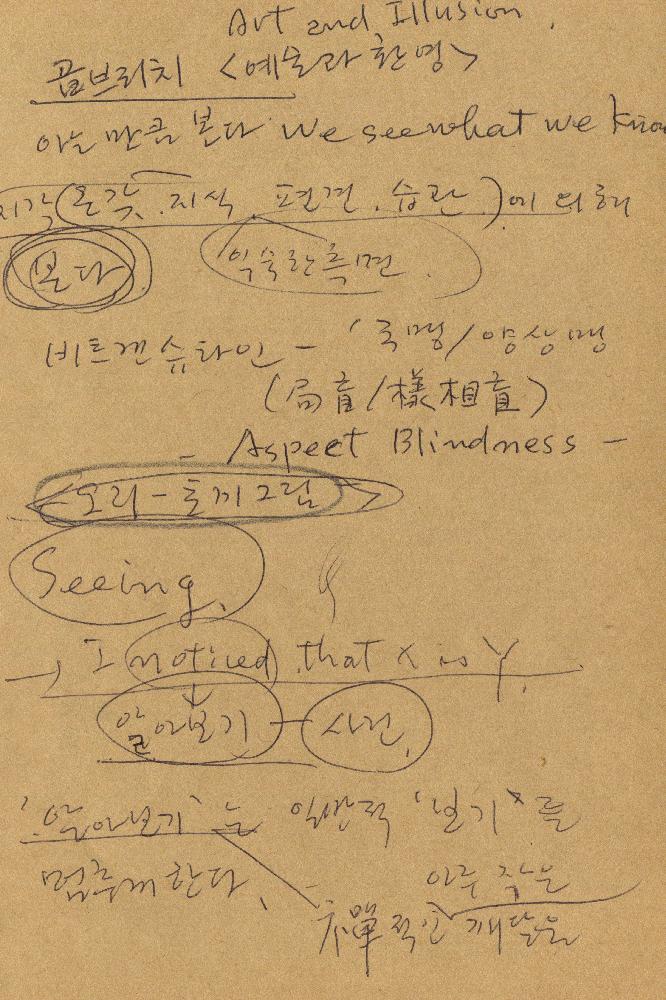 Art and Illusion.
곰브리치 <예술과 환영>
아는 만큼 본다 We see what we know
지각(온갖. 지식. 편견. 습관)에 의해
본다 익숙한 측면.
비트겐슈타인 - '국맹/양상맹
(局盲/樣相盲)
- Aspect Blindness -
<오리-토끼그림>
Seeing.
→ I noticed that X is Y.
알아보기 - 사건.
'알아보기'는 일반적 '보기'를
멈추게 한다. 아주 작은
禪적인 깨달음